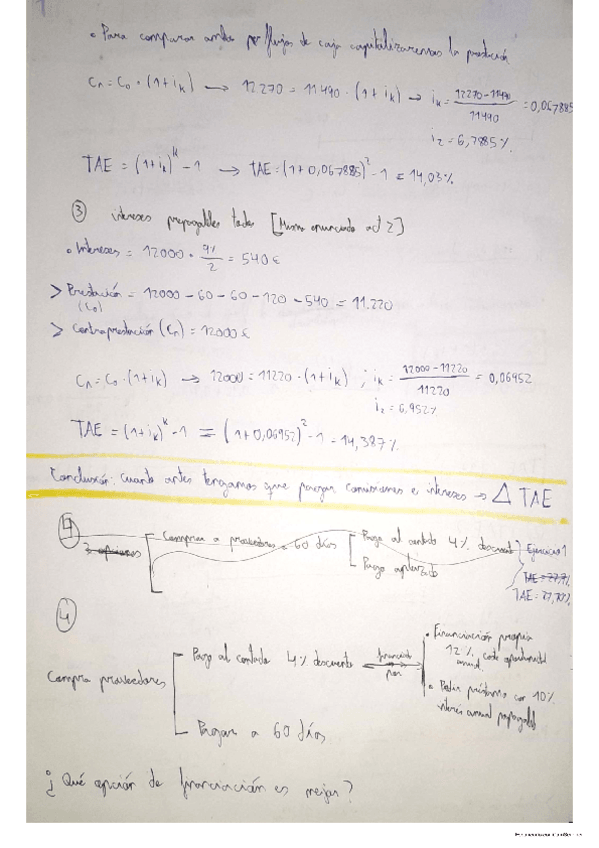 • Para comparar ambas por flujos de caja capitalizaremos la prestación
Cn = C0 · (1+ik) → 12.270 = 11490 · (1+ik) → ik = 12270-11490 / 11490 = 0,067885
i2 = 6,7885%
TAE = (1+ik)^k - 1 → TAE = (1+0,067885)^2 - 1 = 14,03%
③ intereses prepagables todos [Mismo enunciado ad 2]
• Intereses = 12000 · 9% / 2 = 540€
> Prestación = 12000 - 60 - 60 - 120 - 540 = 11.220
(C0)
> Contraprestación (Cn) = 12000€
Cn = C0 · (1+ik) → 12000 = 11220 · (1+ik) ; ik = 12000-11220 / 11220 = 0,06952
i2 = 6,952%
TAE = (1+ik)^k - 1 = (1+0,06952)^2 - 1 = 14,387%
Conclusión: Cuanto antes tengamos que pagar comisiones e intereses → Δ TAE
④ 3 opciones Compra a proveedores a 60 días Pago al contado 4% descuento Ejercicio 1
Pago aplazado TAE = 27,7%
TAE: 27,78%
④
Compra proveedores
Pago al contado 4% descuento financiado por
• Financiación propia
12% coste oportunidad
anual
• Pedir préstamo con 10%
interés anual pospagable
Pagar a 60 días
¿Qué opción de financiación es mejor?